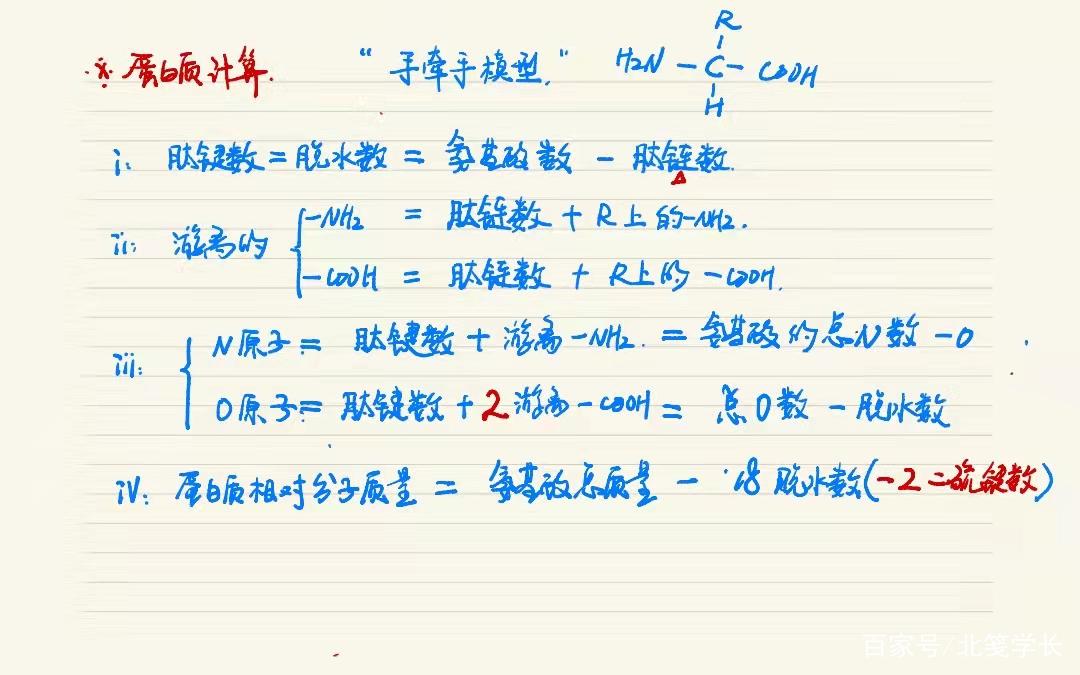 ※ 蛋白质计算. “手牵手模型.”
R
H2N - C - COOH
H
i: 肽键数 = 脱水数 = 氨基酸数 - 肽链数.
ii: 游离的 { -NH2 = 肽链数 + R上的-NH2.
-COOH = 肽链数 + R上的 -COOH.
iii: { N原子 = 肽键数 + 游离-NH2. = 氨基酸的总N数 - 0
O原子 = 肽键数 + 2游离-COOH = 总O数 - 脱水数
iV: 蛋白质相对分子质量 = 氨基酸总质量 - 18脱水数(-2二硫键数)
百家号/北笺学长